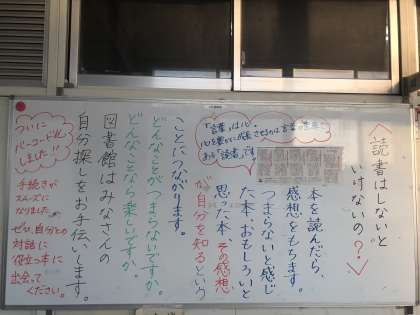 ＜読書はしないと
いけないの？＞
本を読んだら、
感想をもちます。
つまらないと感じ
た本、おもしろいと
思った本、その感想
が自分を知るという
ことにつながります。
どんなことがつまらないですか。
どんなことなら楽しいですか。
図書館はみなさんの
自分探しをお手伝いします。
「言葉」は心。
心を豊かに成長させるのは言葉の
ある「読書」です。
ついに
バーコード化
しました!!
手続きが
スムーズに
なりました。
ぜひ、自分との
対話に
役立つ本に
出会って
ください。